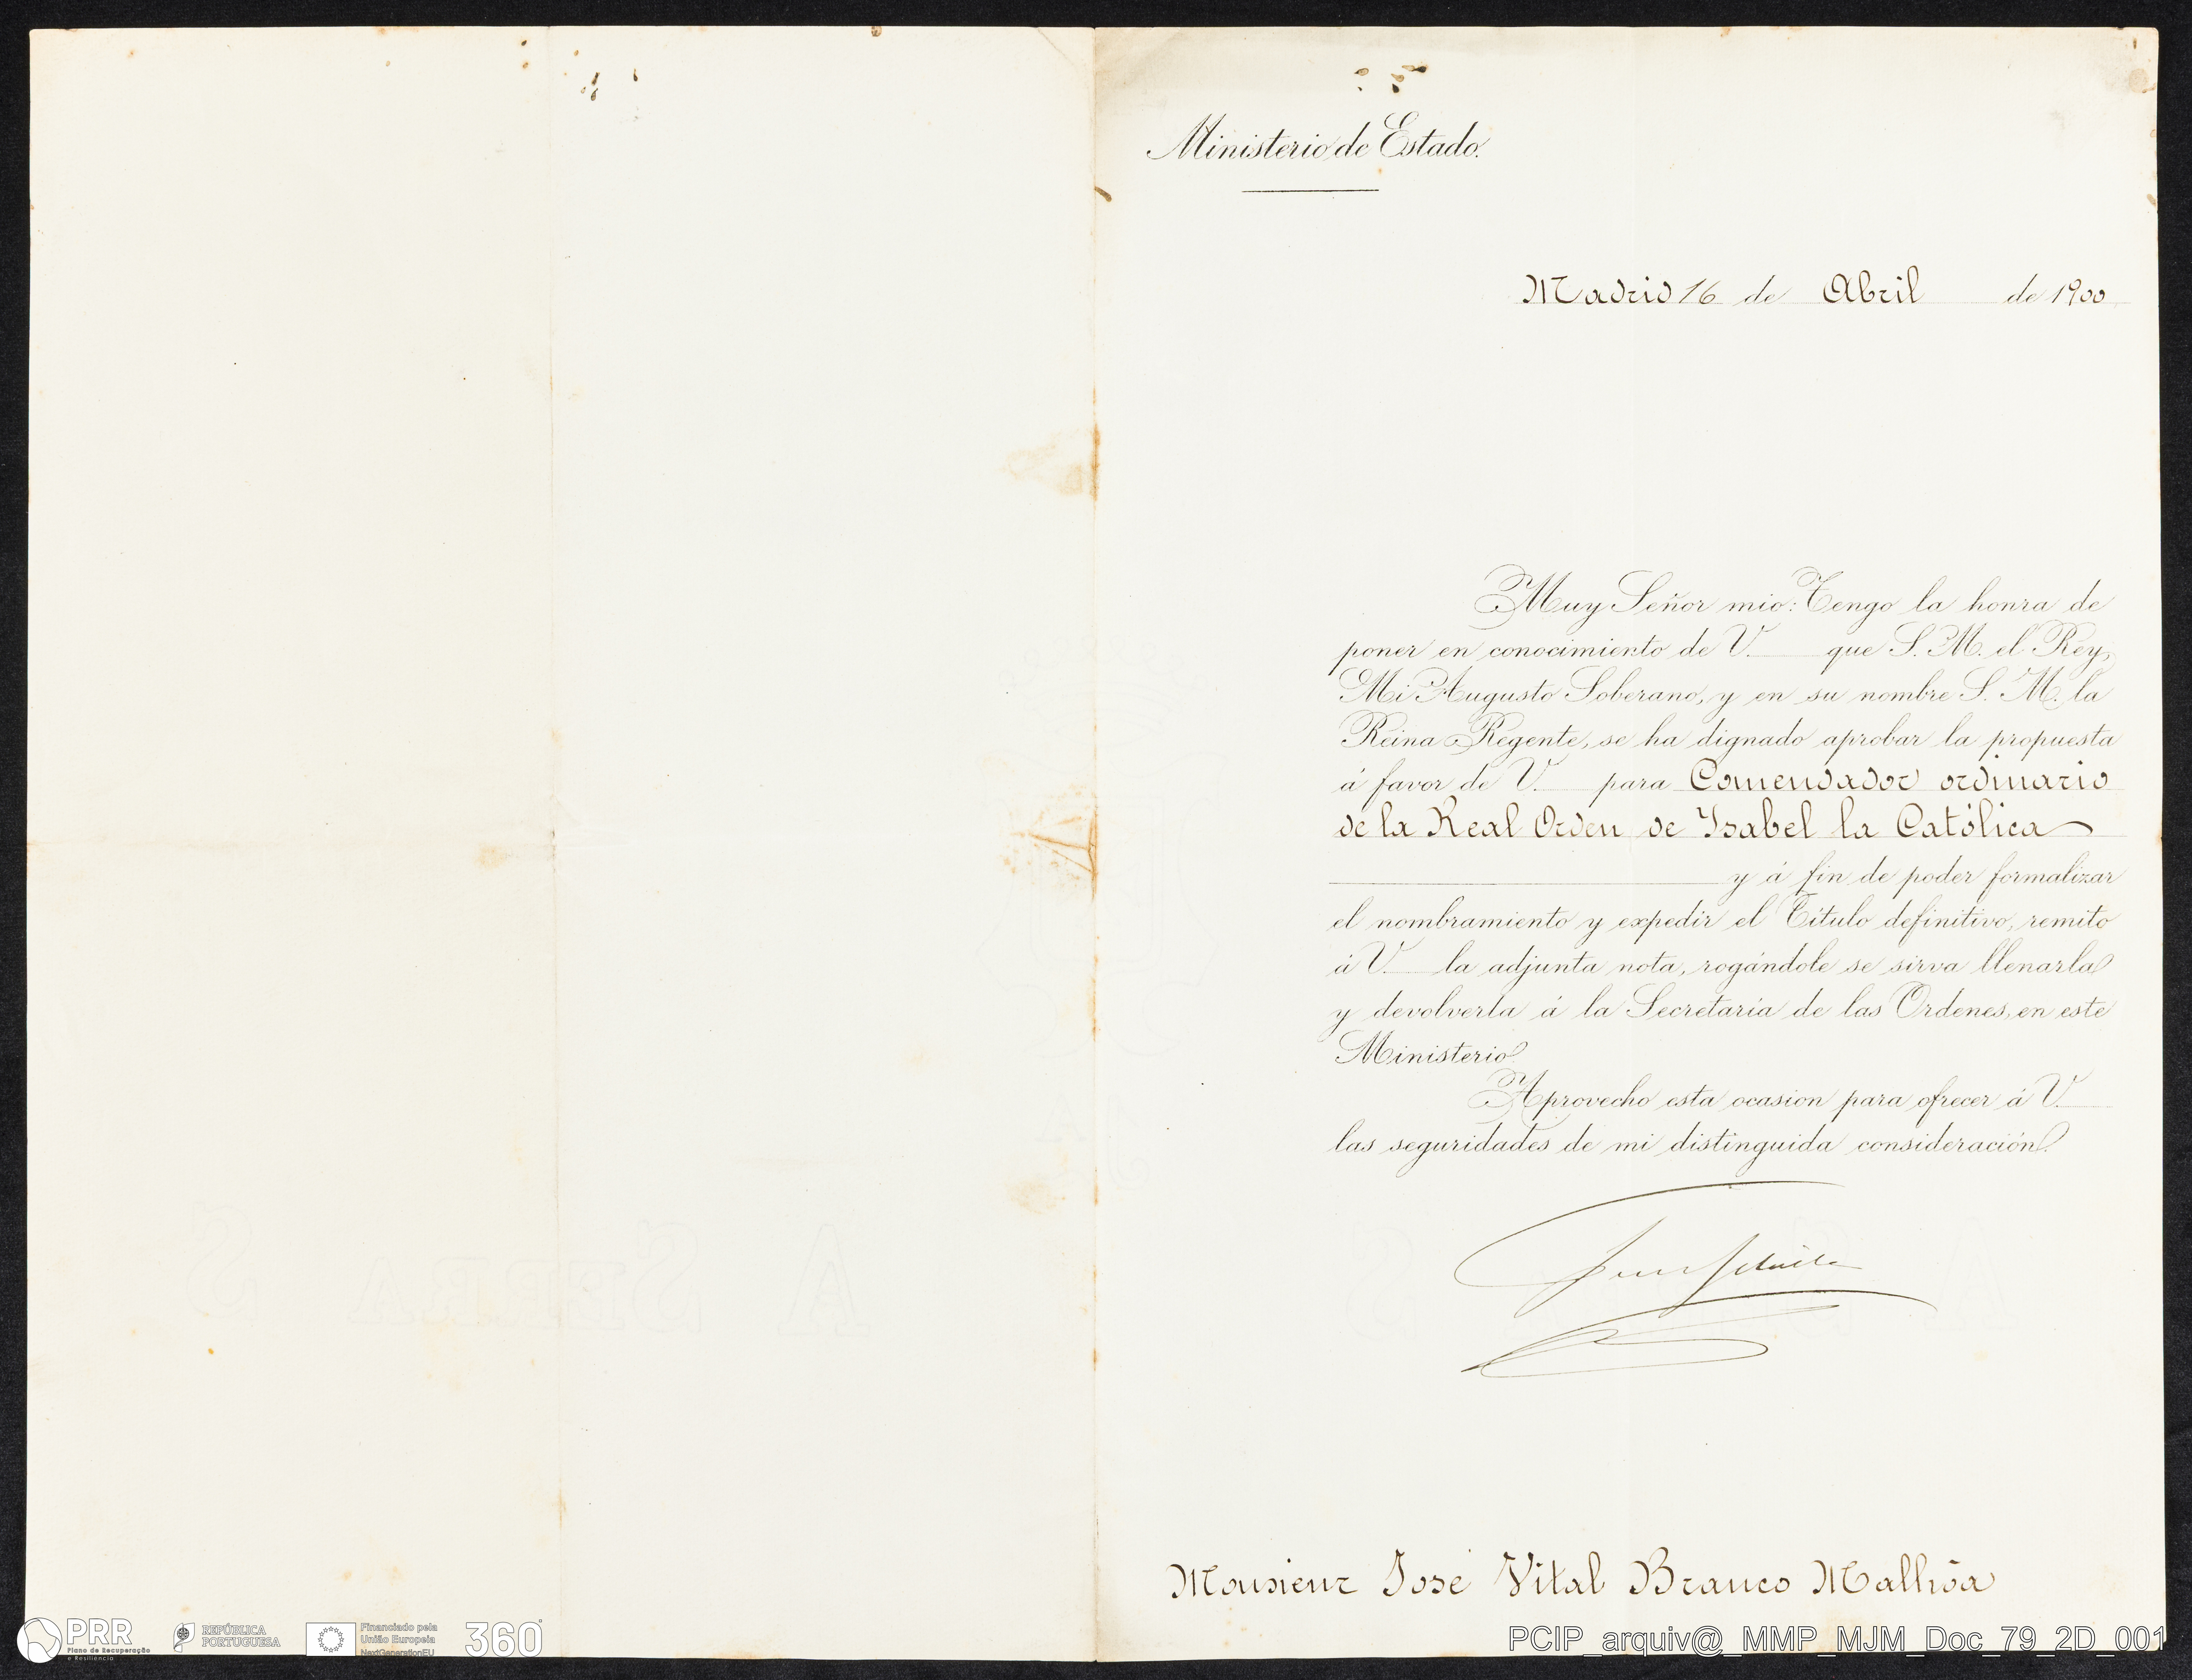 Ministerio de Estado.
Madrid 16 de Abril de 1900
Muy Señor mio: Tengo la honra de
poner en conocimiento de V. que S. M. el Rey,
Mi Augusto Soberano, y en su nombre S. M. la
Reina Regente, se ha dignado aprobar la propuesta
á favor de V. para Comendador ordinario
de la Real Orden de Ysabel la Católica
y á fin de poder formalizar
el nombramiento y expedir el Título definitivo, remito
á V. la adjunta nota, rogándole se sirva llenarla
y devolverla á la Secretaría de las Ordenes, en este
Ministerio.
Aprovecho esta ocasion para ofrecer á V.
las seguridades de mi distinguida consideración.
Monsieur José Vital Branco Malhõa
A SERRA S
PRR
Plano de Recuperação
e Resiliência
REPÚBLICA
PORTUGUESA
Financiado pela
União Europeia
NextGenerationEU
360°
PCIP_arquiv@_MMP_MJM_Doc_79_2D_001